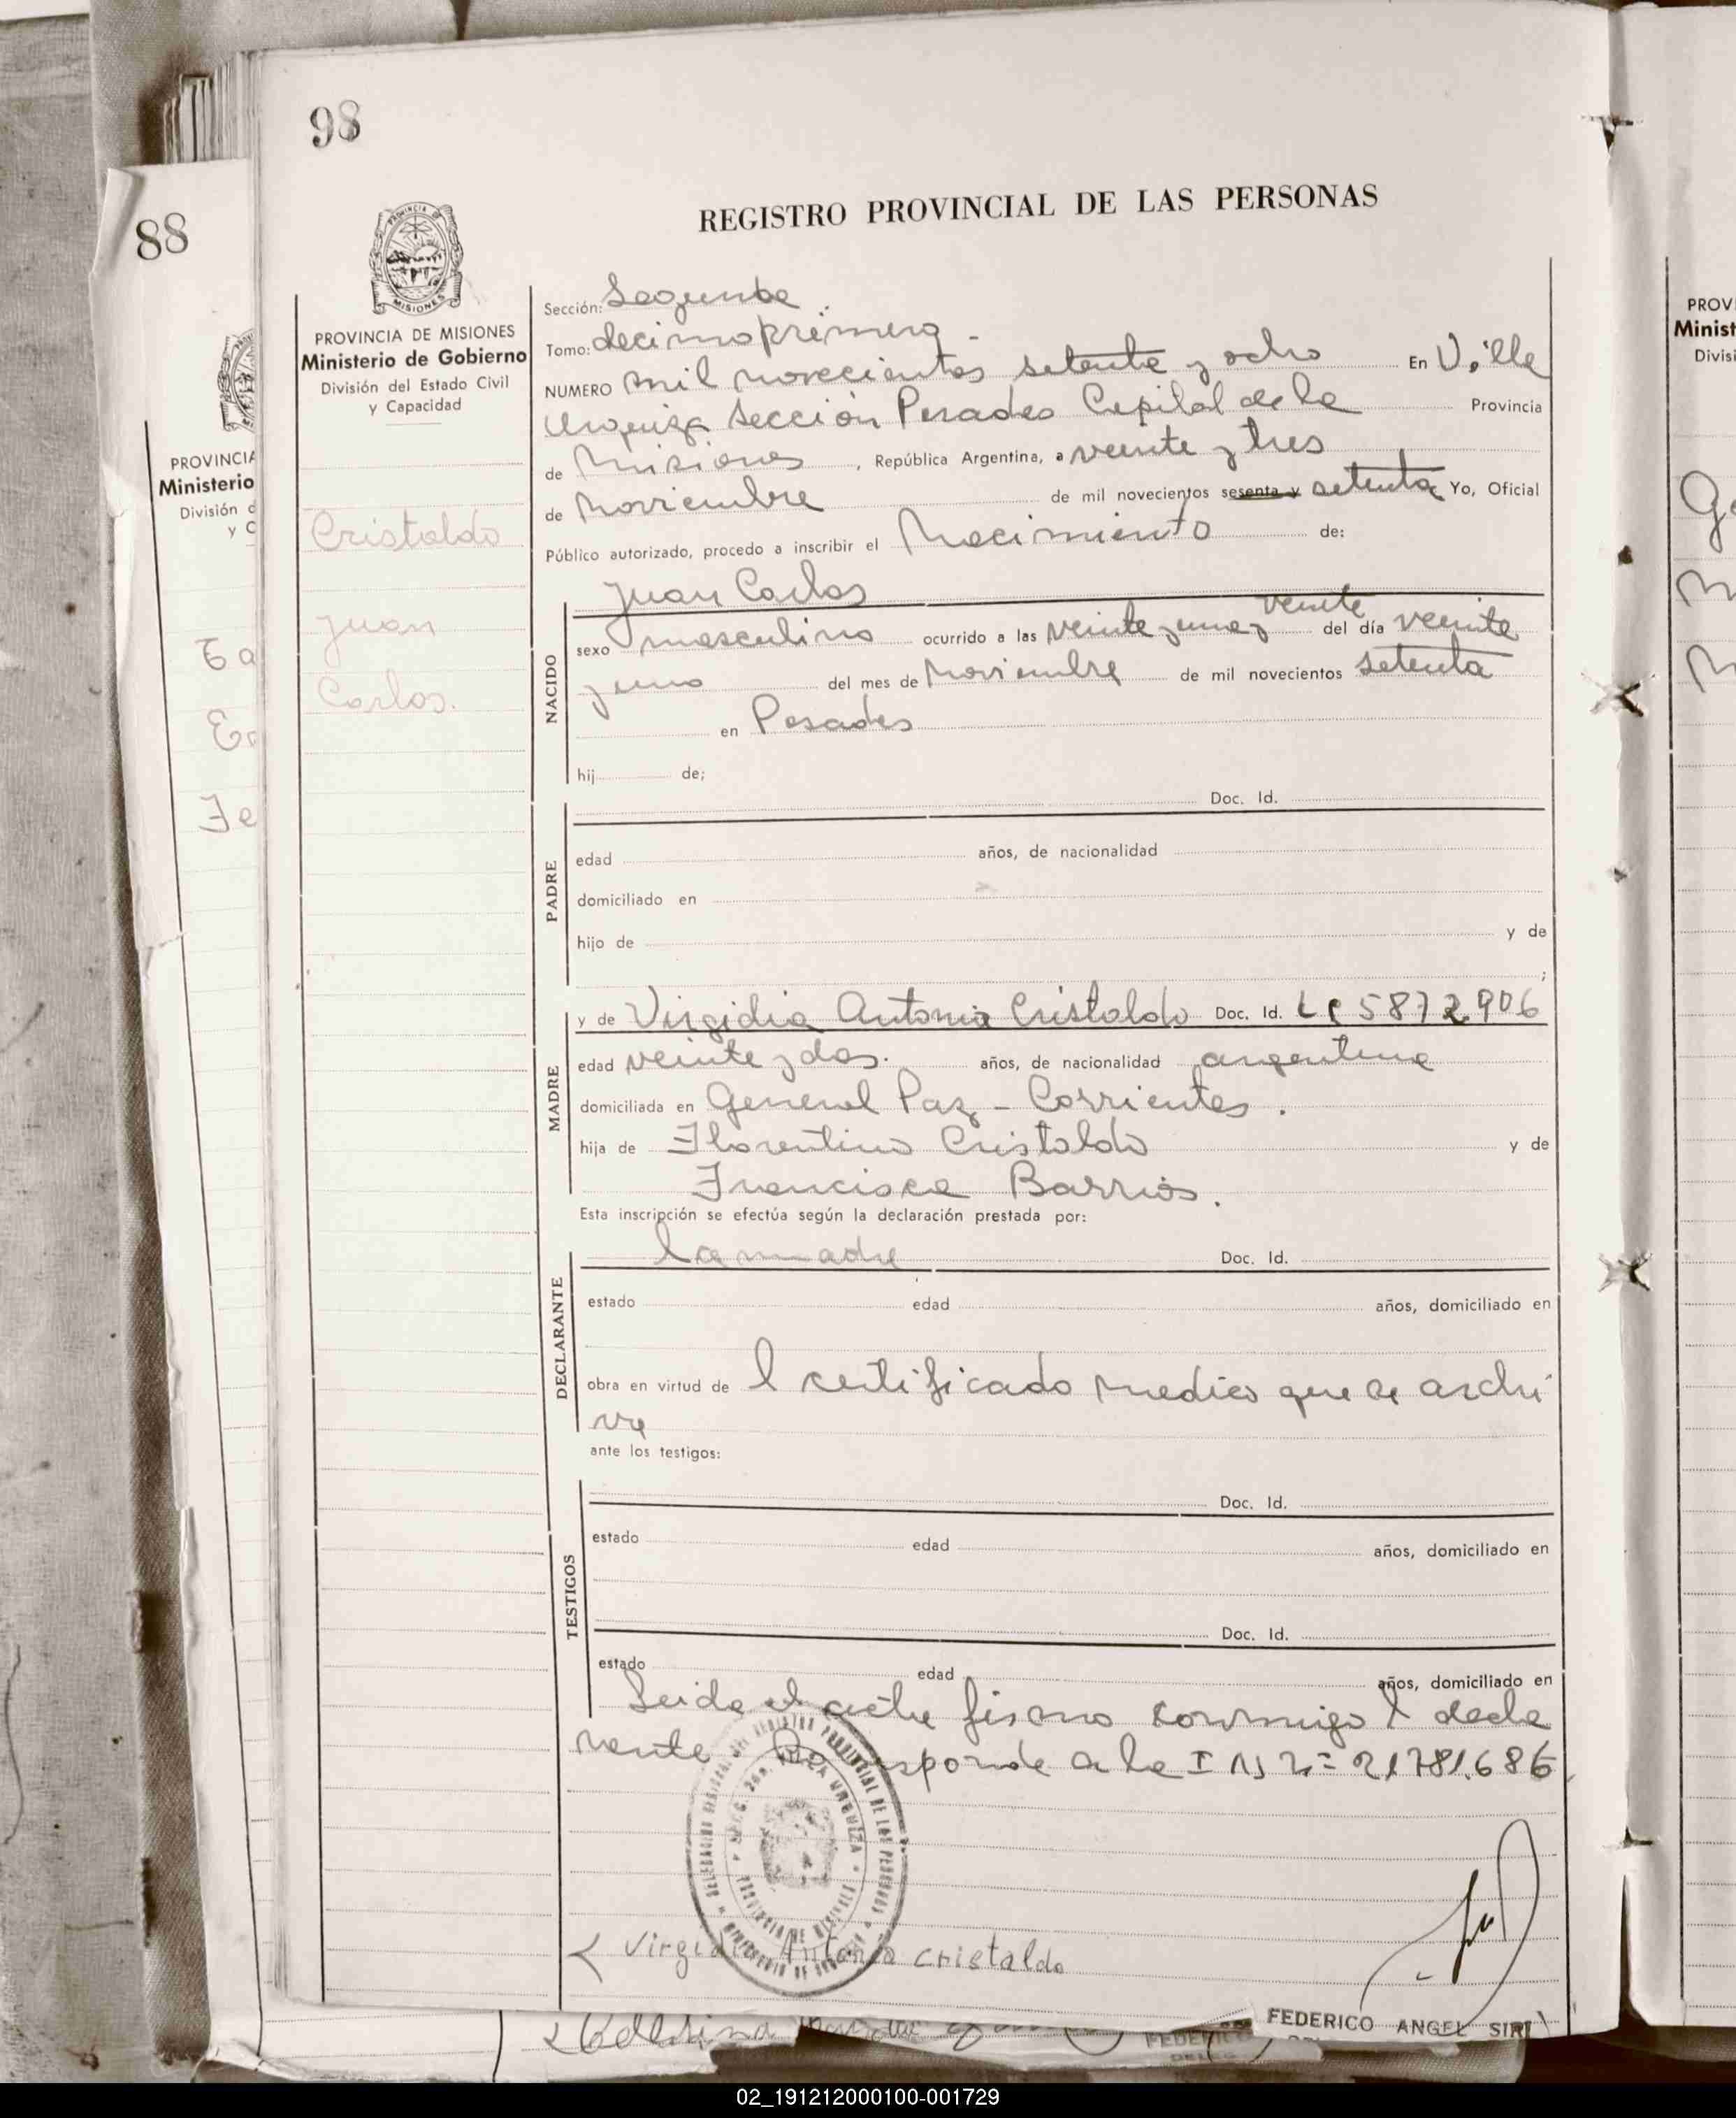 98
88
REGISTRO PROVINCIAL DE LAS PERSONAS
PROVINCIA DE MISIONES
Ministerio de Gobierno
División del Estado Civil
y Capacidad
Cristaldo
Juan
Carlos.
Sección: Segunda
Tomo: decimoprimero -
NUMERO mil novecientos setenta y ocho En Ville
Urquiza Sección Posadas Capital de la Provincia
de Misiones, República Argentina, a veinte y tres
de Noviembre de mil novecientos sesenta y setenta Yo, Oficial
Público autorizado, procedo a inscribir el Nacimiento de:
Juan Carlos
NACIDO
veinte
sexo masculino ocurrido a las veinte y una y del día veinte
y uno del mes de Noviembre de mil novecientos setenta
en Posadas
hij de;
Doc. Id.
PADRE
edad años, de nacionalidad
domiciliado en
hijo de y de
;
MADRE
y de Virgidia Antonia Cristaldo Doc. Id. LC 5872906
edad veinte y dos. años, de nacionalidad argentina
domiciliada en General Paz - Corrientes.
hija de Florentino Cristaldo y de
Francisca Barrios.
Esta inscripción se efectúa según la declaración prestada por:
la madre Doc. Id.
DECLARANTE
estado edad años, domiciliado en
obra en virtud de l certificado medico que se archi
va
ante los testigos:
Doc. Id.
TESTIGOS
estado edad años, domiciliado en
Doc. Id.
estado edad años, domiciliado en
Leida el acta firmo conmigo l decla
rante esponde a la I N N= 21781.686
Virgidia Antonia cristaldo
FEDERICO ANGEL SIRI
PROVINCIA
Ministerio
División d
y C
Ta
Fe
PROV
Minist
Divisi
02_191212000100-001729